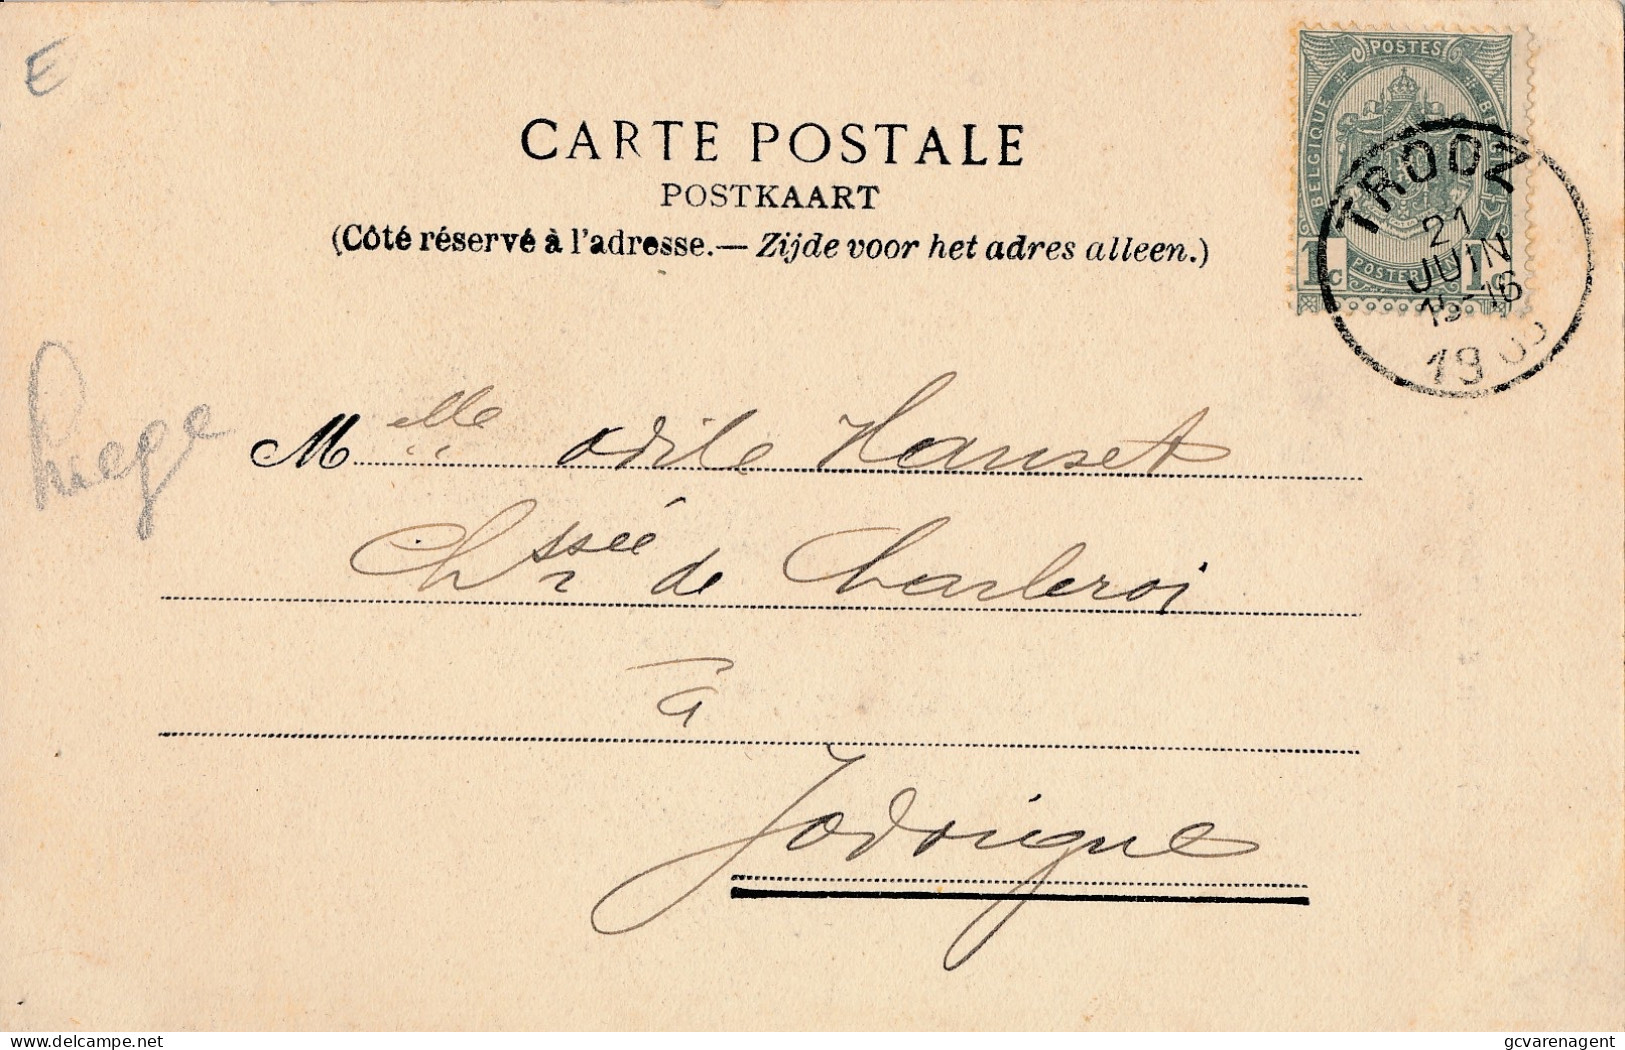 E
CARTE POSTALE
POSTKAART
(Côté réservé à l'adresse.— Zijde voor het adres alleen.)
POSTES
BELGIQUE
1c
1c
TROOZ
21
JUIN
15-16
19
Liege
Melle Odile Hanset
Chssée de Charleroi
à
Jodoigne
delcampe.net
gcvarenagent